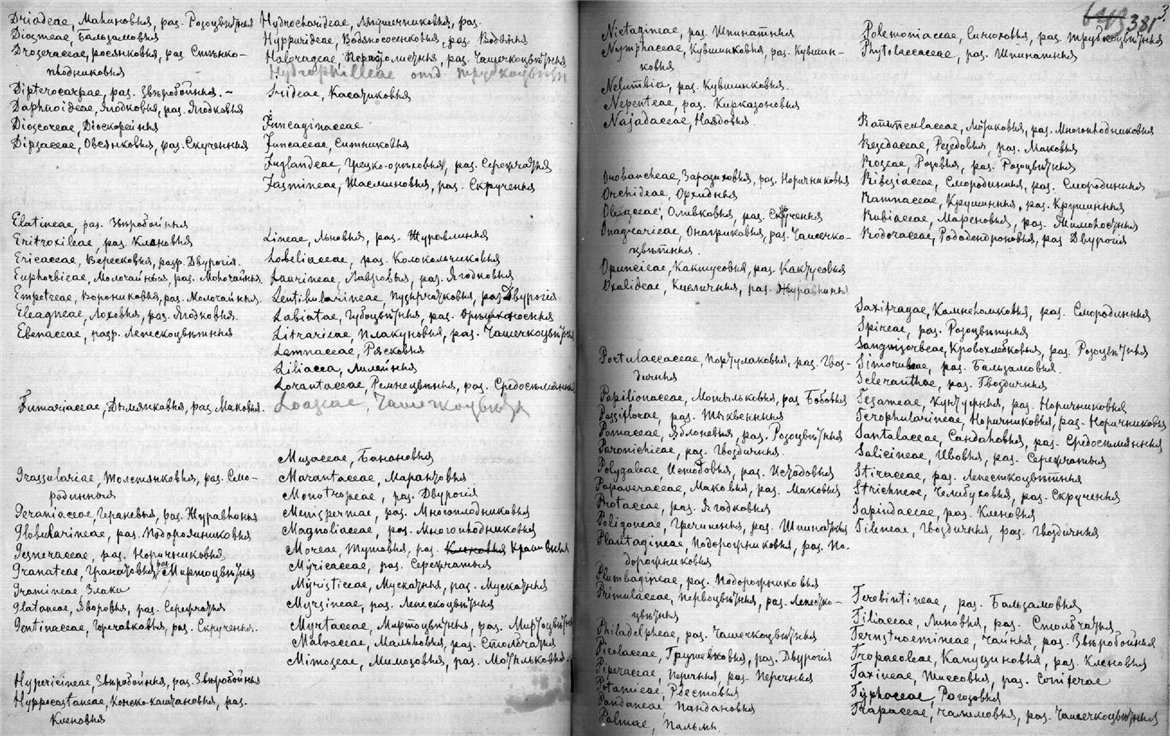 Driadeae, Малиновыя, раз. Розоцвѣтныя
Diosmeae, Бальзамовыя
Droseraceae, росянковыя, раз. Стѣнко-
плодниковыя
Dipterocarpae, раз. Звѣробойныя. -
Daphnoideae, Ягодковыя, раз. Ягодковыя
Dioscoreae, Диоскорейныя
Dipsaceae, Овсянковыя, раз. Скученныя
Elatineae, раз. Звѣробойныя
Eritroxileae, раз. Кленовыя
Ericaceae, Вересковыя, разр. Двурогія.
Euphorbiceae, Молочайныя, раз. Молочайныя
Empetreae, Ворониковыя, раз. Молочайныя.
Eleagneae, Лоховыя, раз. Ягодковыя.
Ebenaceae, разр. Лепескоцвѣтныя
Fumariaceae, Дымянковыя, раз. Маковыя.
Grassulariae, Толстянковыя, раз. Смо-
родинныя
Geraniaceae, Гераневыя, раз. Журавлиныя
Globularineae, раз. Подорожниковыя
Gesneraceae, раз. Норичниковыя
Granateae, Гранатовыя раз. Миртоцвѣтныя
Gramineae, Злаки
Plataneae, Яворовыя, раз. Сережчатыя
Gentinaceae, Горечавковыя, раз. Скученныя.
Hypericineae, Звѣробойныя, раз. Звѣробойныя
Hyppocastaneae, Конско-каштановыя, раз.
Кленовыя
Hydrocharideae, Лягушечниковыя, раз.
Hyppurideae, Водяносоенковыя, раз. Водяныя
Halorageae, раз. Чашечкоцвѣтныя
Hydrophilleae отд. трубкоцвѣтн
Irideae, Касатиковыя
Juncaginaceae
Juncaceae, Ситниковыя
Juglandeae, Грецко-орѣховыя, раз. Сережчатыя
Jasmineae, Жасминовыя, раз. Скрученныя
Lineae, Льновыя, раз. Журавлиныя
Lobeliaceae, раз. Колокольчиковыя
Laurineae, Лавровыя, раз. Ягодковыя
Lentibularineae, Пузырчатковыя, раз. Двурогія
Labiatae, Губоцвѣтныя, раз. Орѣшконосныя
Litrariceae, Плакуновыя, раз. Чашечкоцвѣтныя
Lemnaceae, Рясковыя
Liliacea, Лилейныя
Lorantaceae Ремнецвѣтныя, раз. Средосѣмянныя
Loaseae, Чашечкоцвѣтныя
Musaceae, Банановыя
Marantaceae, Марантовыя
Monotropeae, раз. Двурогія
Menispermae, раз. Многоплодниковыя
Magnoliaceae, раз. Многоплодниковыя
Moreae, Тутовыя, раз. Кленовыя Крапивныя
Myricaceae, раз. Сережчатыя
Myristiceae, Мускатныя, раз. Мускатныя
Myrsineae, раз. Лепескоцвѣтныя
Myrtaceae, Миртоцвѣтныя, раз. Миртоцвѣтныя
Malvaceae, Мальвовыя, раз. Столбчатыя
Mimoseae, Мимозовыя, раз. Мотыльковыя.
Nictagineae, раз. Шпинатныя
Nymphaceae, Кувшинковыя, раз. Кувшин-
ковыя
Nelumbia, раз. Кувшинковыя.
Nepenteae, раз. Кирказоновыя
Najadaceae, Наядовыя.
Orobancheae, Заразиховыя, раз. Норичниковыя
Orchideae, Орхидныя
Oleaceae, Оливковыя, раз. Скрученныя
Onagrarieae, Онагриковыя, раз. Чашечко-
цвѣтныя
Opuncieae, Кактусовыя, раз. Кактусовыя
Oxalideae, Кисличныя, раз. Журавлиныя
Portulaccaceae, Портулаковыя, раз. Гвоз-
дичныя
Papilionaceae, Мотыльковыя, раз. Бобовыя
Passiflorae, раз. Тыквенныя
Pomaceae, Яблоневыя, раз. Розоцвѣтныя
Paronichieae, раз. Гвоздичныя.
Polygaleae, Истодовыя, раз. Истодовыя
Papaveraceae, Маковыя, раз. Маковыя
Protaceae, раз. Ягодковыя
Poligoneae, Гречишныя, раз. Шпинатныя
Plantagineae, Подорожниковыя, раз. По-
дорожниковыя
Plumbagineae, раз. Подорожниковыя
Primulaceae, первоцвѣтныя, раз. Лепеско-
цвѣтныя
Philadelpheae, раз. Чашечкоцвѣтныя
Pirolaceae, Грушевковыя, раз. Двурогія
Piperaceae, Перечныя, раз. Перечныя
Potameae, Рдестовыя
Pandaneae, Пандановыя
Palmae, Пальмы.
381
Polemoniaceae, Синюховыя, раз. Трубкоцвѣтныя
Phytolacaceae, раз. Шпинатныя
Ranunculaceae, Лютиковыя, раз. Многоплодниковыя
Resedaceae, Резедовыя, раз. Маковыя
Roseae, Розовыя, раз. Розоцвѣтныя
Ribesiaceae, Смородинныя, раз. Смородинныя
Ramnaceae, Крушинныя, раз. Крушинныя
Rubiaceae, Мареновыя, раз.
Rodoraceae, Рододендроновыя, раз Двурогія
Saxifragae, Камнеломковыя, раз. Смородинныя
Spireae, раз. Розоцвѣтныя
Sangvisorbeae, Кровохлебковыя, раз. Розоцвѣтныя
Simorubeae, раз. Бальзамовыя.
Scleranthae, раз. Гвоздичныя
Sezameae, Кунжутныя, раз. Норичниковыя
Scrophularineae, Норичниковыя, раз. Норичниковыя
Santalaceae, Сандаловыя, раз. Средосѣмянныя
Salicineae, Ивовыя, раз. Сережчатыя
Stiraceae, раз. Лепесткоцвѣтныя
Strichneae, Челибуховыя, раз. Скрученныя
Sapindaceae, раз. Кленовыя
Sileneae, Гвоздичныя, раз. Гвоздичныя
Terebintineae, раз. Бальзамовыя
Tiliaceae, Липовыя, раз. Столбчатыя
Ternstroemineae, Чайныя, раз. Звѣробойныя
Tropaeoleae, Капуциновыя, раз. Кленовыя
Taxineae, Тиссовыя, раз. Coniferae
Typhaceae, Рогозовыя
Trapaceae, Чилимовыя, раз. Чашечкоцвѣтныя